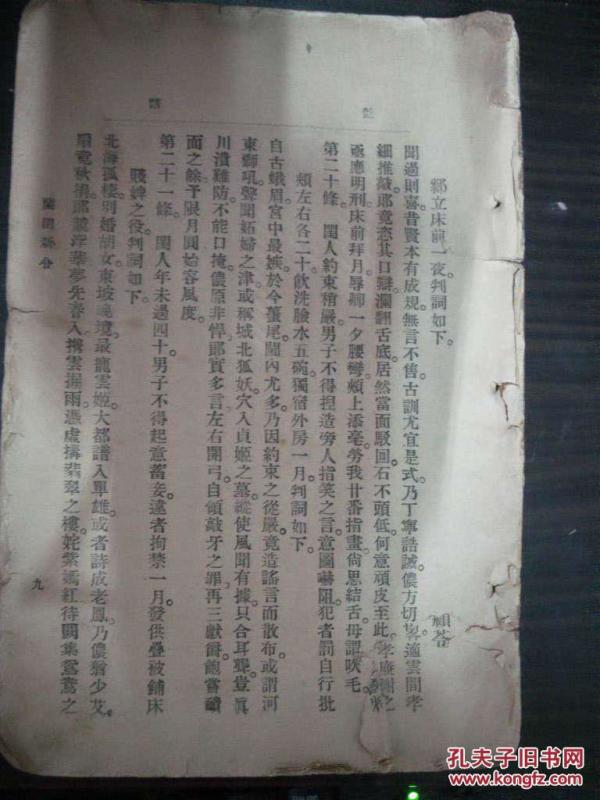 鄰立床前一夜。判詞如下。
聞過則喜。昔賢本有成規。無言不售。古訓尤宜是式。乃丁寧誥誡。儂方切
細推敲。郎竟恣其口辯。瀾翻舌底。居然當面駁回。石不頭低。何意頑皮至此。
亟應明刑。床前拜月。辱聊一夕腰彎。頰上添毫。勞我廿番指畫。尙思結舌。毋謂吹毛。
第二十條。閨人約束稍嚴。男子不得揑造旁人指笑之言。意圖嚇阻。犯者罰自行批
頰左右各二十。飲洗臉水五碗。獨宿外房一月。判詞如下。
自古蛾眉。宮中最嫉。於今蠆尾。閫內尤多。乃因約束之從嚴。竟造謠言而散布。或謂河
東獅吼。聲聞妬婦之津。或稱城北狐妖。穴入貞姬之墓。縱使風聞有據。只合耳聾。豈眞
川潰難防。不能口掩。儂原非悍。郎實多言。左右開弓。自領敲牙之罪。再三獻
面之餘。予限月圓。始容風度。
第二十一條。閨人年未過四十。男子不得起意蓄妾。違者拘禁一月。發供疊被鋪床
賤婢之役。判詞如下。
北海孤棲。別婚胡女。東坡晚境。最寵雲姬。大都譜入單雄。或者詩成老鳳。乃儂猶少艾。
之
九
孔夫子旧书网
www.kongfz.com